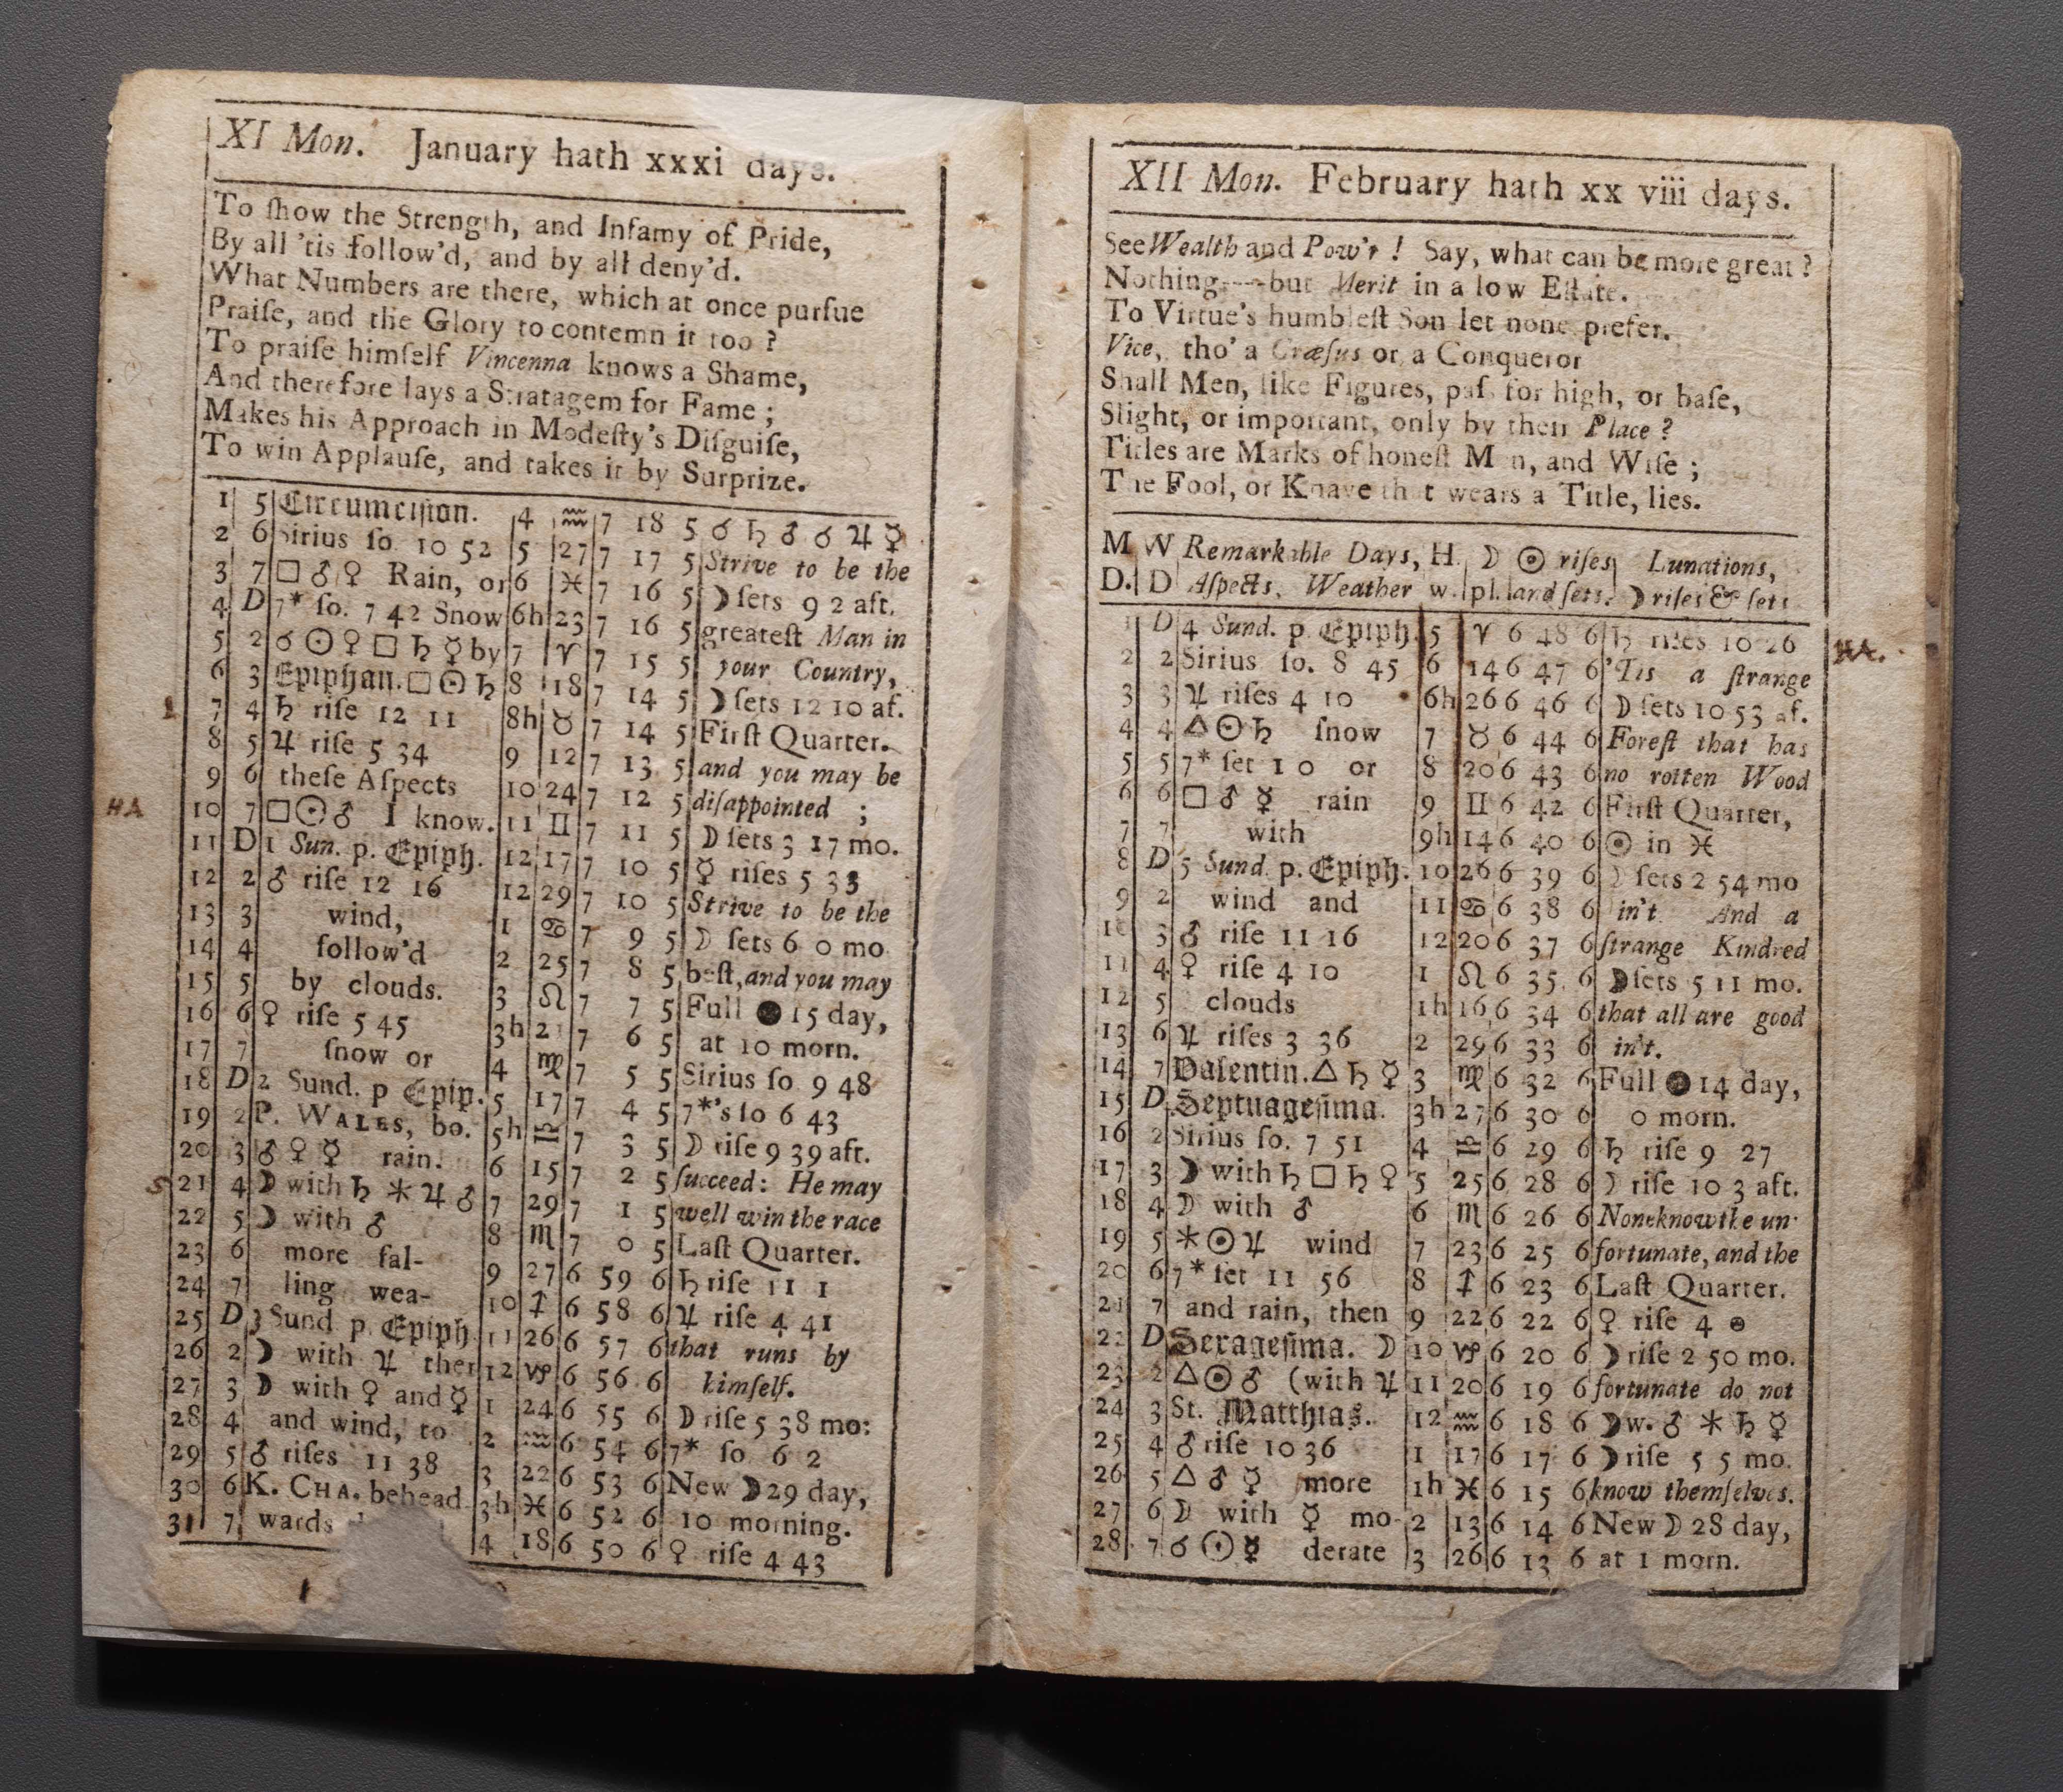 XI Mon. January hath xxxi days.
To ſhow the Strength, and Infamy of Pride,
By all 'tis follow'd, and by all deny'd.
What Numbers are there, which at once purſue
Praiſe, and the Glory to contemn it too ?
To praiſe himſelf Vincenna knows a Shame,
And therefore lays a Stratagem for Fame ;
Makes his Approach in Modeſty's Diſguiſe,
To win Applauſe, and takes it by Surprize.
1 5 Circumciſion. 4 ♒ 7 18 5 ☌ ♄ ♂ ☌ ♃ ☿
2 6 Sirius ſo 10 52 5 27 7 17 5 Strive to be the
3 7 □ ♂ ♀ Rain, or 6 ♓ 7 16 5 ☽ ſets 9 2 aft.
4 D 7* ſo. 7 42 Snow 6h 23 7 16 5 greateſt Man in
5 2 ☌ ☉ ♀ □ ♄ ☿ by 7 ♈ 7 15 5 your Country,
6 3 Epiphan. □ ☉ ♄ 8 18 7 14 5 ☽ ſets 12 10 af.
7 4 ♄ riſe 12 11 8h ♉ 7 14 5 Firſt Quarter.
8 5 ♃ riſe 5 34 9 12 7 13 5 and you may be
9 6 theſe Aſpects 10 24 7 12 5 diſappointed ;
HA 10 7 □ ☉ ♂ I know. 11 ♊ 7 11 5 ☽ ſets 3 17 mo.
11 D 1 Sun. p. Epiph. 12 17 7 10 5 ☿ riſes 5 33
12 2 ♂ riſe 12 16 12 29 7 10 5 Strive to be the
13 3 wind, 1 ♋ 7 9 5 ☽ ſets 6 0 mo
14 4 follow'd 2 25 7 8 5 beſt, and you may
15 5 by clouds. 3 ♌ 7 7 5 Full ● 15 day,
16 6 ♀ riſe 5 45 3h 21 7 6 5 at 10 morn.
17 7 ſnow or 4 ♍ 7 5 5 Sirius ſo 9 48
18 D 2 Sund. p Epip. 5 17 7 4 5 7*'s ſo 6 43
19 2 P. WALES, bo. 5h ♎ 7 3 5 ☽ riſe 9 39 aft.
20 3 ♂ ♀ ☿ rain. 6 15 7 2 5 ſucceed: He may
S 21 4 ☽ with ♄ ✶ ♃ ♂ 7 29 7 1 5 well win the race
22 5 ☽ with ♂ 8 ♏ 7 0 5 Laſt Quarter.
23 6 more fal- 9 27 6 59 6 ♄ riſe 11 1
24 7 ling wea- 10 ♐ 6 58 6 ♃ riſe 4 41
25 D 3 Sund p. Epiph. 11 26 6 57 6 that runs by
26 2 ☽ with ♃ ther 12 ♑ 6 56 6 himſelf.
27 3 ☽ with ♀ and ☿ 1 24 6 55 6 ☽ riſe 5 38 mo:
28 4 and wind, to 2 ♒ 6 54 6 7* ſo 6 2
29 5 ♂ riſes 11 38 3 22 6 53 6 New ☽ 29 day,
30 6 K. CHA. behead 3h ♓ 6 52 6 10 morning.
31 7 wards 4 18 6 50 6 ♀ riſe 4 43
XII Mon. February hath xx viii days.
See Wealth and Pow'r ! Say, what can be more great ?
Nothing----but Merit in a low Eſtate.
To Virtue's humbleſt Son let none prefer.
Vice, tho' a Cræſus or a Conqueror
Shall Men, like Figures, paſs for high, or baſe,
Slight, or important, only by their Place ?
Titles are Marks of honeſt M n, and Wiſe ;
T e Fool, or Knave th t wears a Title, lies.
M W Remarkable Days, H. ☽ ☉ riſes Lunations,
D. D Aſpects, Weather w. pl. and ſets. ☽ riſes & ſets
1 D 4 Sund. p. Epiph. 5 ♈ 6 48 6 ♄ riſes 10 26 HA.
2 2 Sirius ſo. 8 45 6 14 6 47 6 'Tis a ſtrange
3 3 ♃ riſes 4 10 6h 26 6 46 6 ☽ ſets 10 53 af.
4 4 △ ☉ ♄ ſnow 7 ♉ 6 44 6 Foreſt that has
5 5 7* ſet 1 0 or 8 20 6 43 6 no rotten Wood
6 6 □ ♂ ☿ rain 9 ♊ 6 42 6 Firſt Quarter,
7 7 with 9h 14 6 40 6 ☉ in ♓
8 D 5 Sund. p. Epiph. 10 26 6 39 6 ☽ ſets 2 54 mo
9 2 wind and 11 ♋ 6 38 6 in't. And a
10 3 ♂ riſe 11 16 12 20 6 37 6 ſtrange Kindred
11 4 ♀ riſe 4 10 1 ♌ 6 35 6 ☽ ſets 5 11 mo.
12 5 clouds 1h 16 6 34 6 that all are good
13 6 ♃ riſes 3 36 2 29 6 33 6 in't.
14 7 Valentin. △ ♄ ☿ 3 ♍ 6 32 6 Full ● 14 day,
15 D Septuageſima. 3h 27 6 30 6 0 morn.
16 2 Sirius ſo. 7 51 4 ♎ 6 29 6 ♄ riſe 9 27
17 3 ☽ with ♄ □ ♄ ♀ 5 25 6 28 6 ☽ riſe 10 3 aft.
18 4 ☽ with ♂ 6 ♏ 6 26 6 None know the un-
19 5 ✶ ☉ ♃ wind 7 23 6 25 6 fortunate, and the
20 6 7* ſet 11 56 8 ♐ 6 23 6 Laſt Quarter.
21 7 and rain, then 9 22 6 22 6 ♀ riſe 4 0
22 D Sexageſima. ☽ 10 ♑ 6 20 6 ☽ riſe 2 50 mo.
23 2 △ ☉ ♂ (with ♃ 11 20 6 19 6 fortunate do not
24 3 St. Matthias. 12 ♒ 6 18 6 ☽ w. ♂ ✶ ♄ ☿
25 4 ♂ riſe 10 36 1 17 6 17 6 ☽ riſe 5 5 mo.
26 5 △ ♂ ☿ more 1h ♓ 6 15 6 know themſelves.
27 6 ☽ with ☿ mo- 2 13 6 14 6 New ☽ 28 day,
28 7 ☌ ☉ ☿ derate 3 26 6 13 6 at 1 morn.